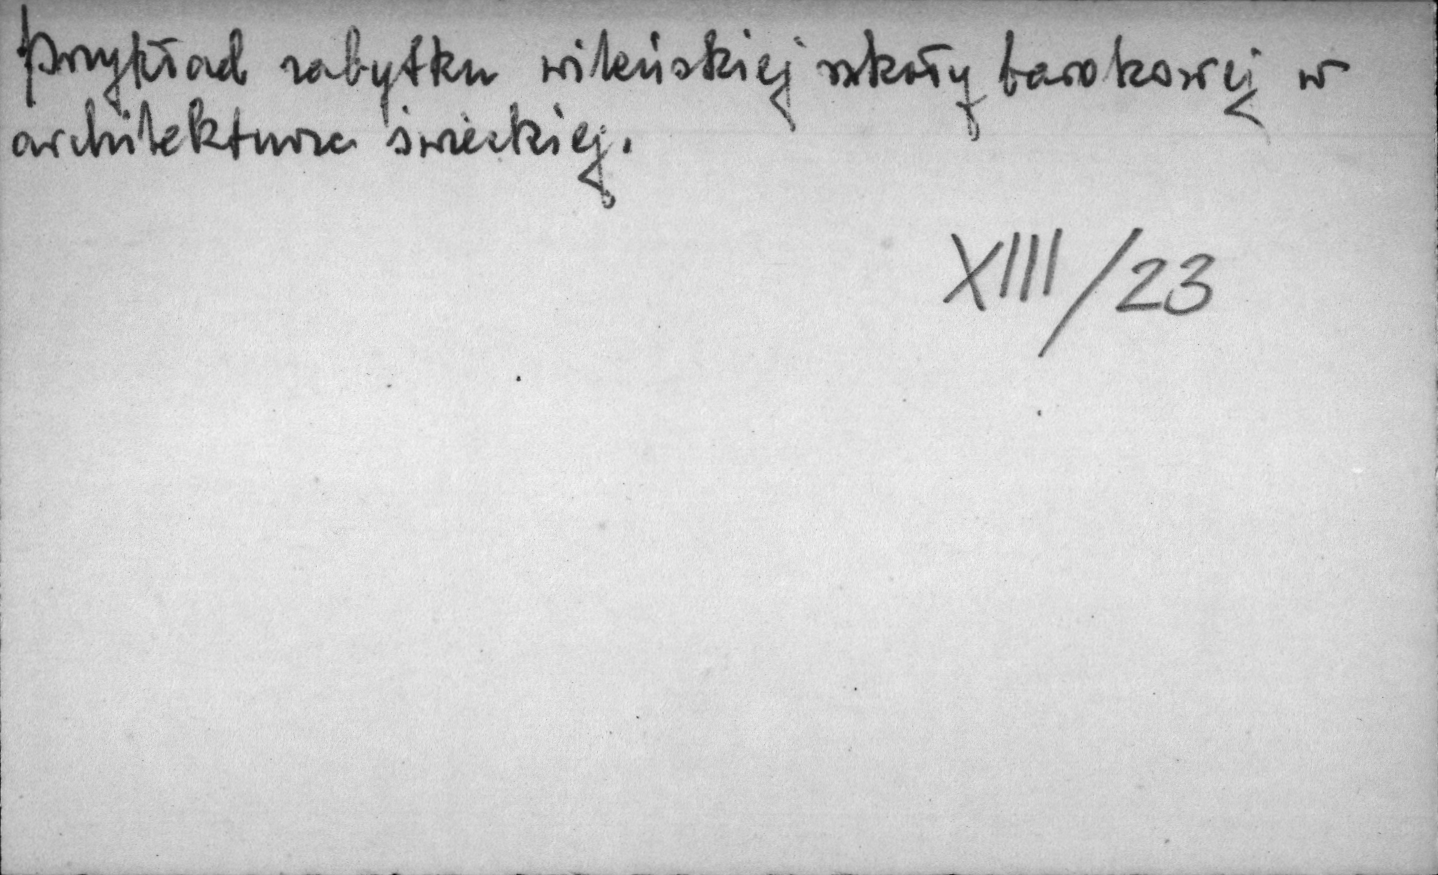 przykład zabytku wileńskiej szkoły barokowej w
architekturze świeckiej.
XIII/23